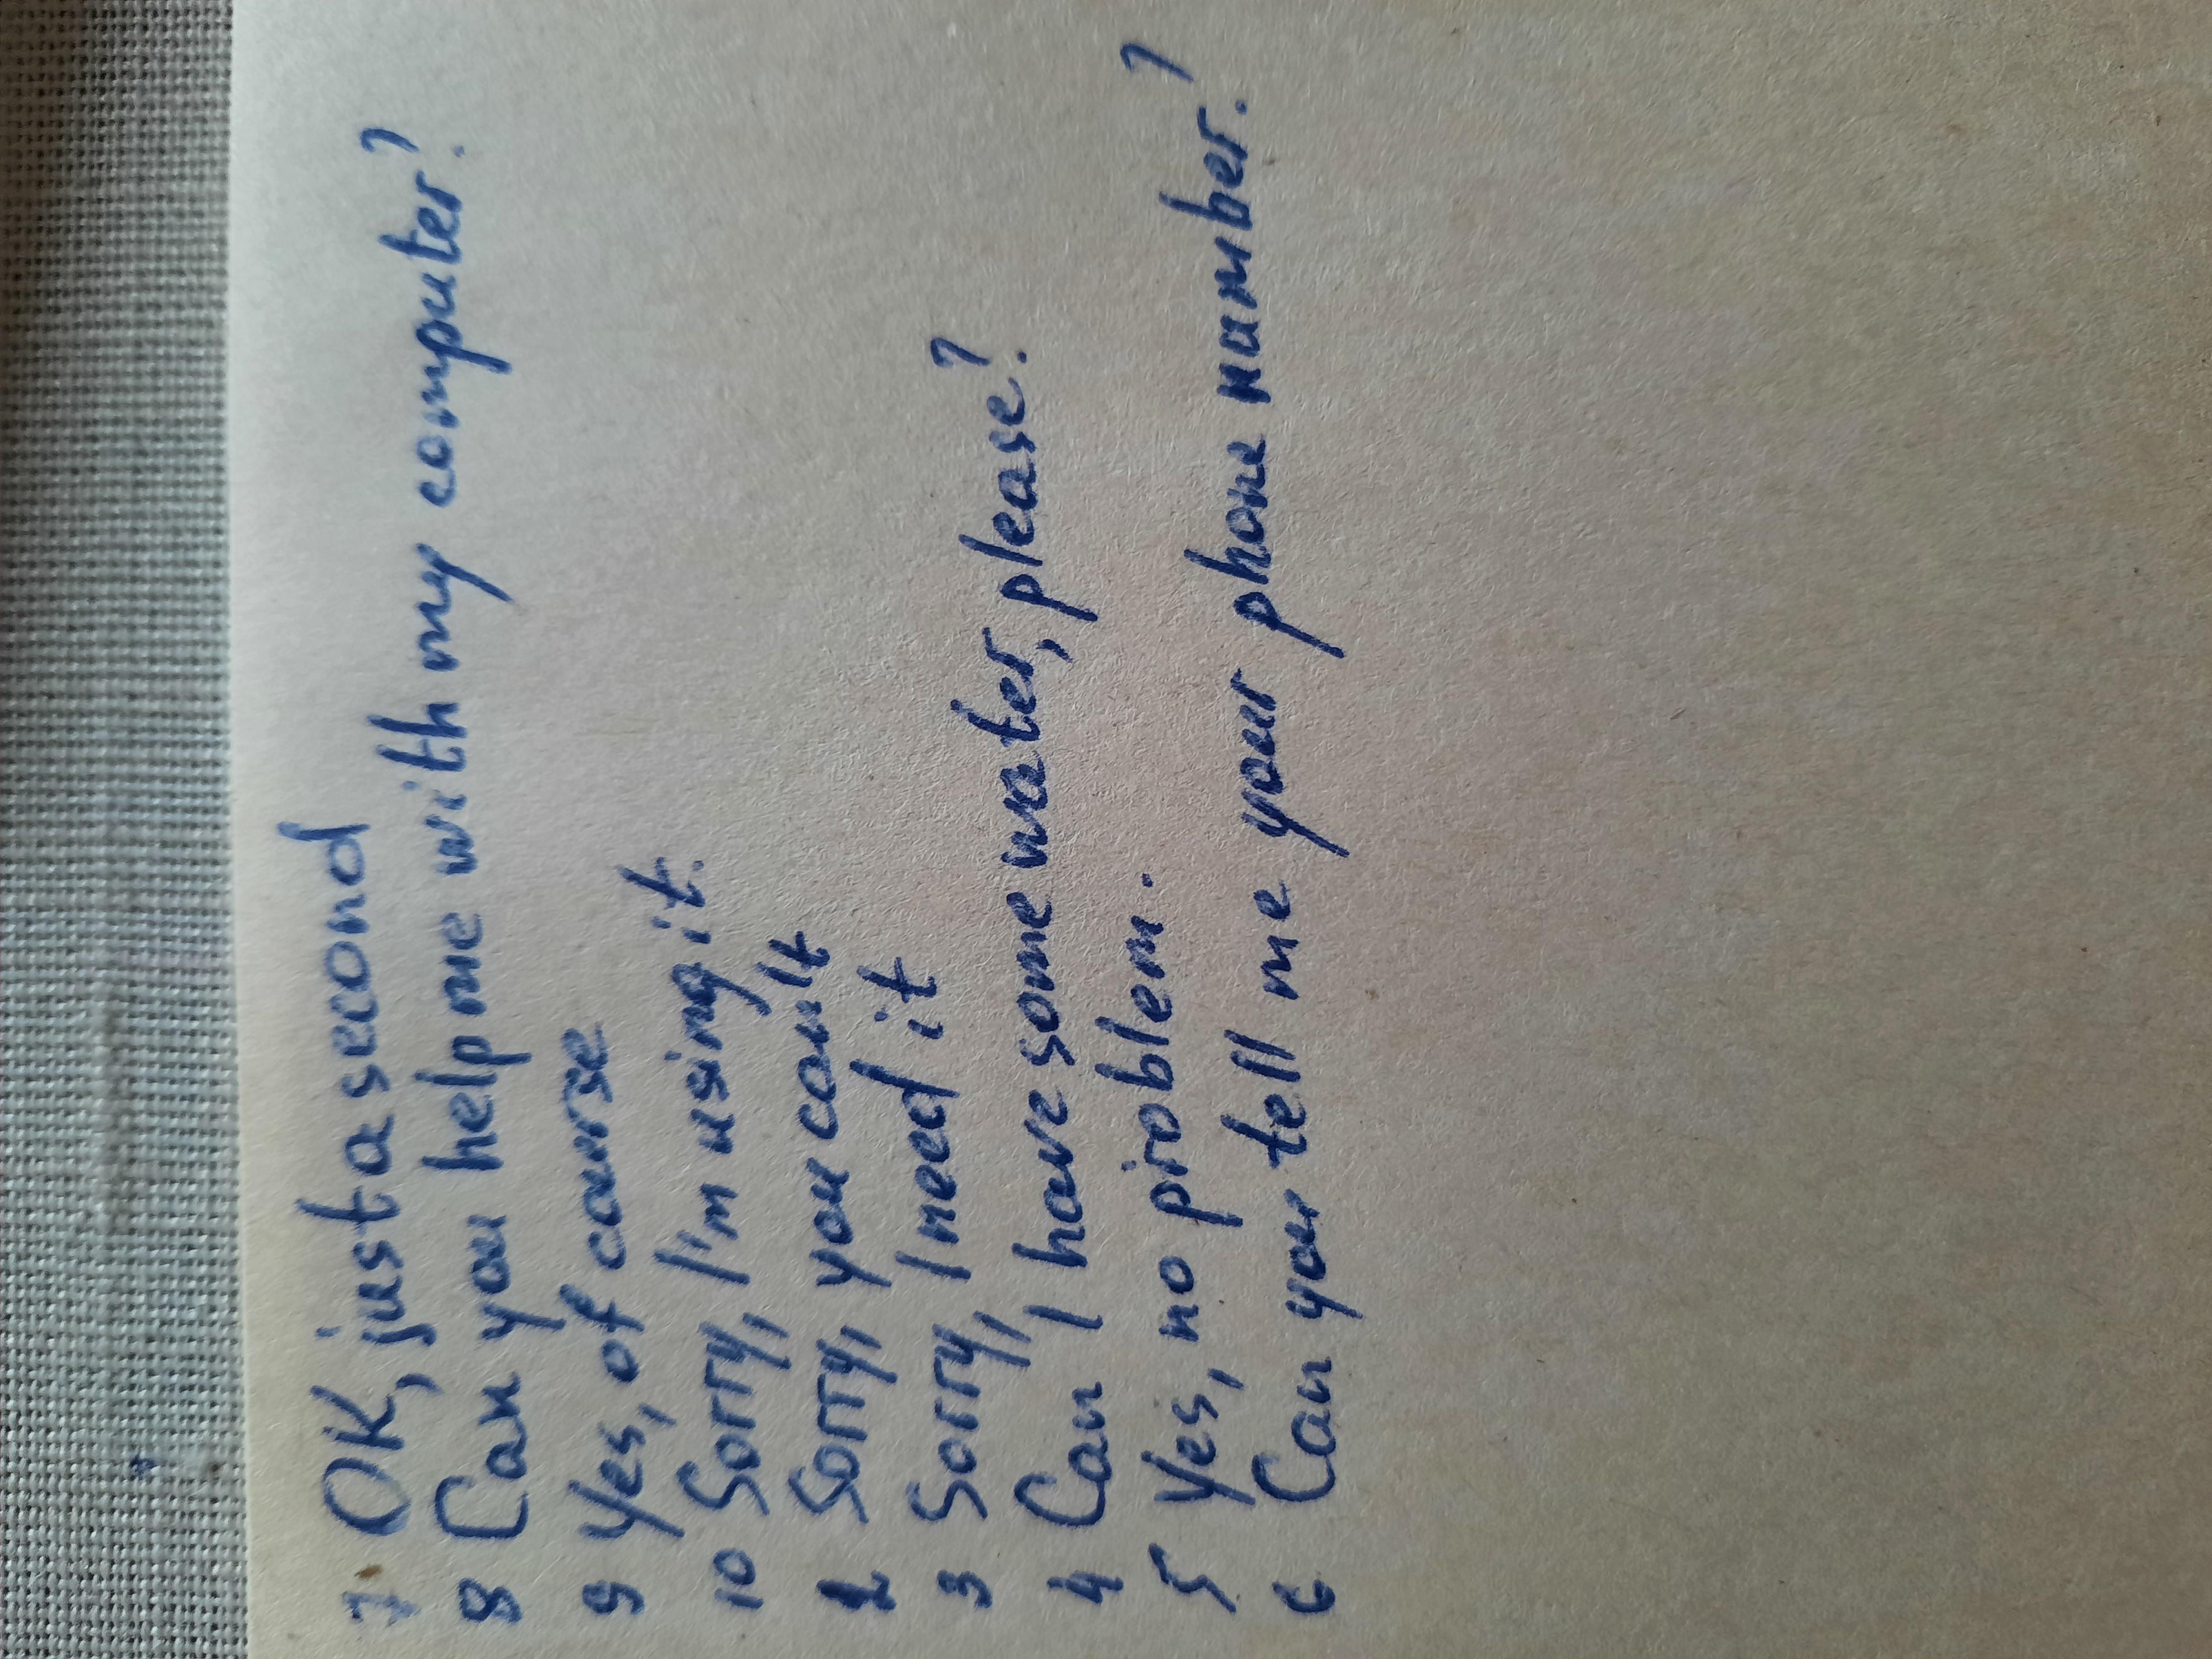 7 OK, just a second
8 Can you help me with my computer?
9 Yes, of course
10 Sorry, I'm using it.
2 Sorry, you can't
3 Sorry, I need it
4 Can I have some water, please?
5 Yes, no problem.
6 Can you tell me your phone number?